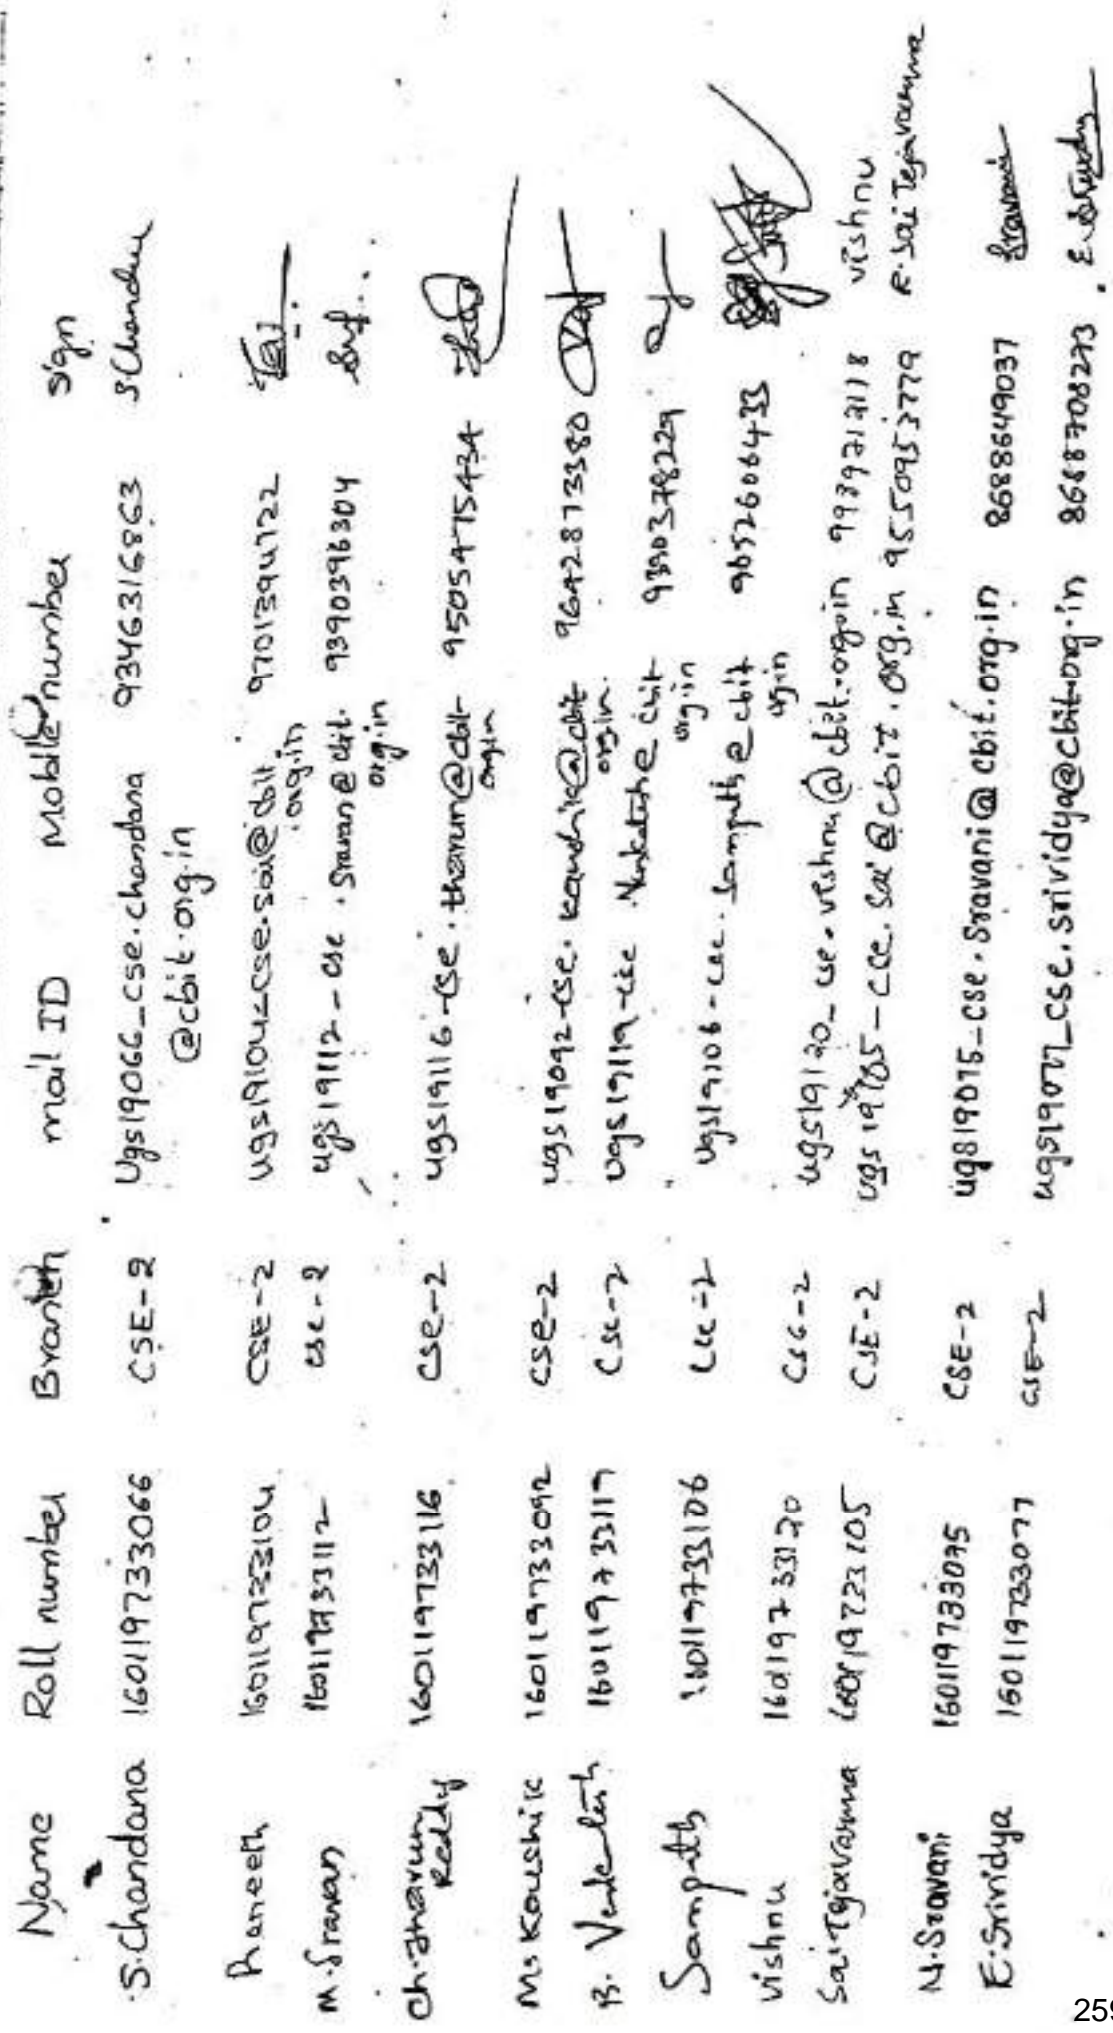 Name Roll number Branch mail ID Mobile number Sign
S.Chandana 160119733066 CSE-2 Ugs19066_cse.chandana 9346316863 SChandu
@cbit.org.in
Praneeth 160119733104 CSE-2 ugs19104_cse.sai@cbit 9701394722 Sai
.org.in
M.Sravan 160119733112 cse-2 ugs19112-cse.sravan@cbit. 9390396304
org.in
Ch.Tharun 160119733116 CSe-2 ugs19116-cse.tharun@cbit- 9505475434
Reddy org.in
M.Koushik 160119733092 CSe-2 ugs19092-cse.koushik@cbit 9642873380
org.in.
B. Venkatesh 160119733119 CSe-2 ugs19119-cse.Venkatesh@cbit 9390378229
org.in
Sampath 160119733106 cse-2 ugs19106-cse.sampath@cbit 9652606433
org.in
Vishnu 160119733120 CSE-2 ugs19120_cse.vishnu@cbit.orgoin 9939712118 vishnu
SaiTejavarma 160119723105 CSE-2 ugs19105-cse.sai@cbit.org.in 9550953779 R.SaiTejavarma
N.Sravani 160119733075 CSE-2 ugs19075_cse.Sravani@cbit.org.in 8688649037 Sravani
E.Srividya 160119733077 CSE-2 ugs19077_cse.srividya@cbit.org.in 8688708273 E.Srividya
259